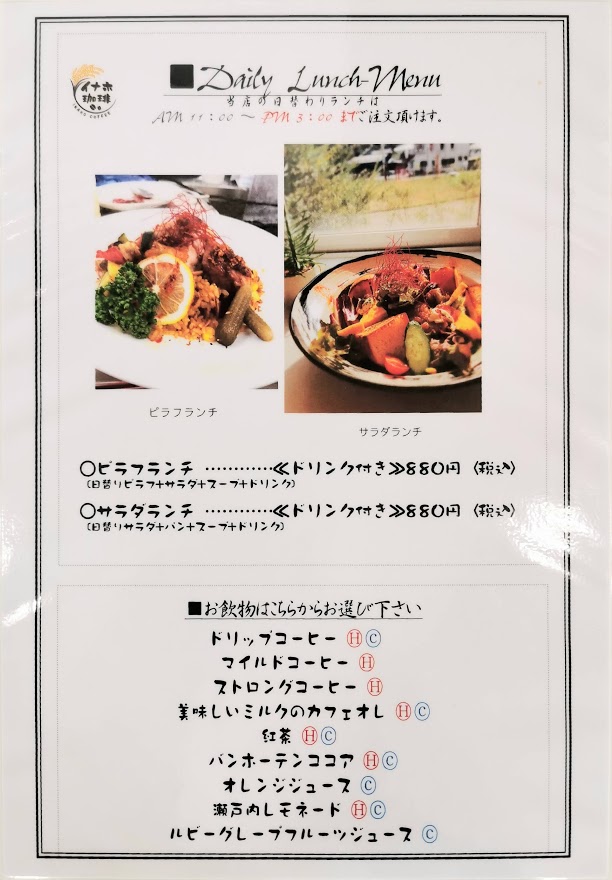 イナホ
珈琲
INAHO COFFEE
■Daily Lunch-Menu
当店の日替わりランチは
AM 11:00 ～ PM 3:00 までご注文頂けます。
ピラフランチ
サラダランチ
○ピラフランチ …………≪ドリンク付き≫880円〈税込〉
(日替りピラフ+サラダ+スープ+ドリンク)
○サラダランチ …………≪ドリンク付き≫880円〈税込〉
(日替りサラダ+パン+スープ+ドリンク)
■お飲物はこちらからお選び下さい
ドリップコーヒー Ⓗ Ⓒ
マイルドコーヒー Ⓗ
ストロングコーヒー Ⓗ
美味しいミルクのカフェオレ Ⓗ Ⓒ
紅茶 Ⓗ Ⓒ
バンホーテンココア Ⓗ Ⓒ
オレンジジュース Ⓒ
瀬戸内レモネード Ⓗ Ⓒ
ルビーグレープフルーツジュース Ⓒ